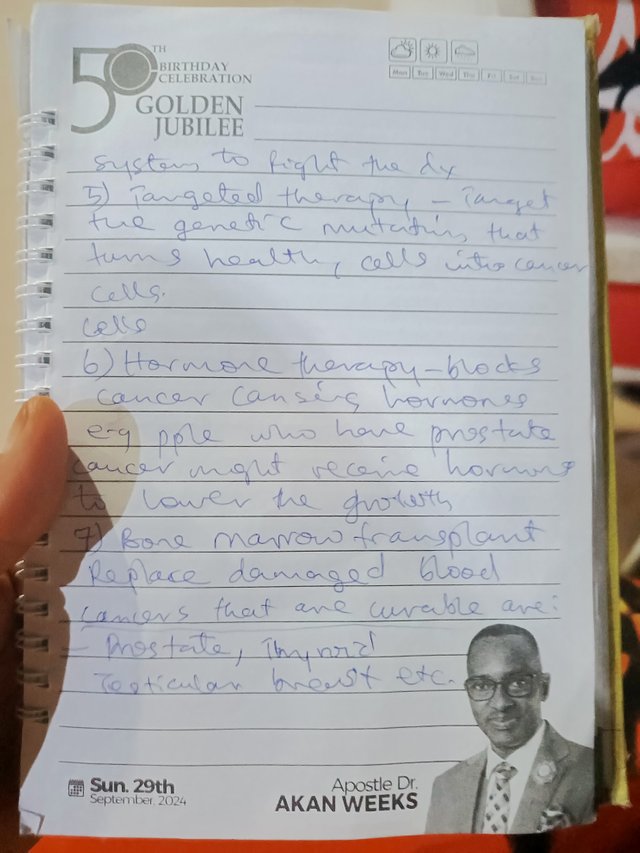 50TH
BIRTHDAY
CELEBRATION
GOLDEN
JUBILEE
Mon Tue Wed Thu Fri Sat Sun
system to fight the dx
5) Targeted therapy - Target
the genetic mutations that
turns healthy cells into cancer
cells.
cells
6) Hormone therapy - blocks
cancer causing hormones
e-g pple who have prostate
cancer might receive hormone
to lower the growth
7) Bone marrow transplant
Replace damaged blood
cancers that are curable are:
- Prostate, Thyroid
Testicular breast etc.
Sun. 29th
September. 2024
Apostle Dr.
AKAN WEEKS